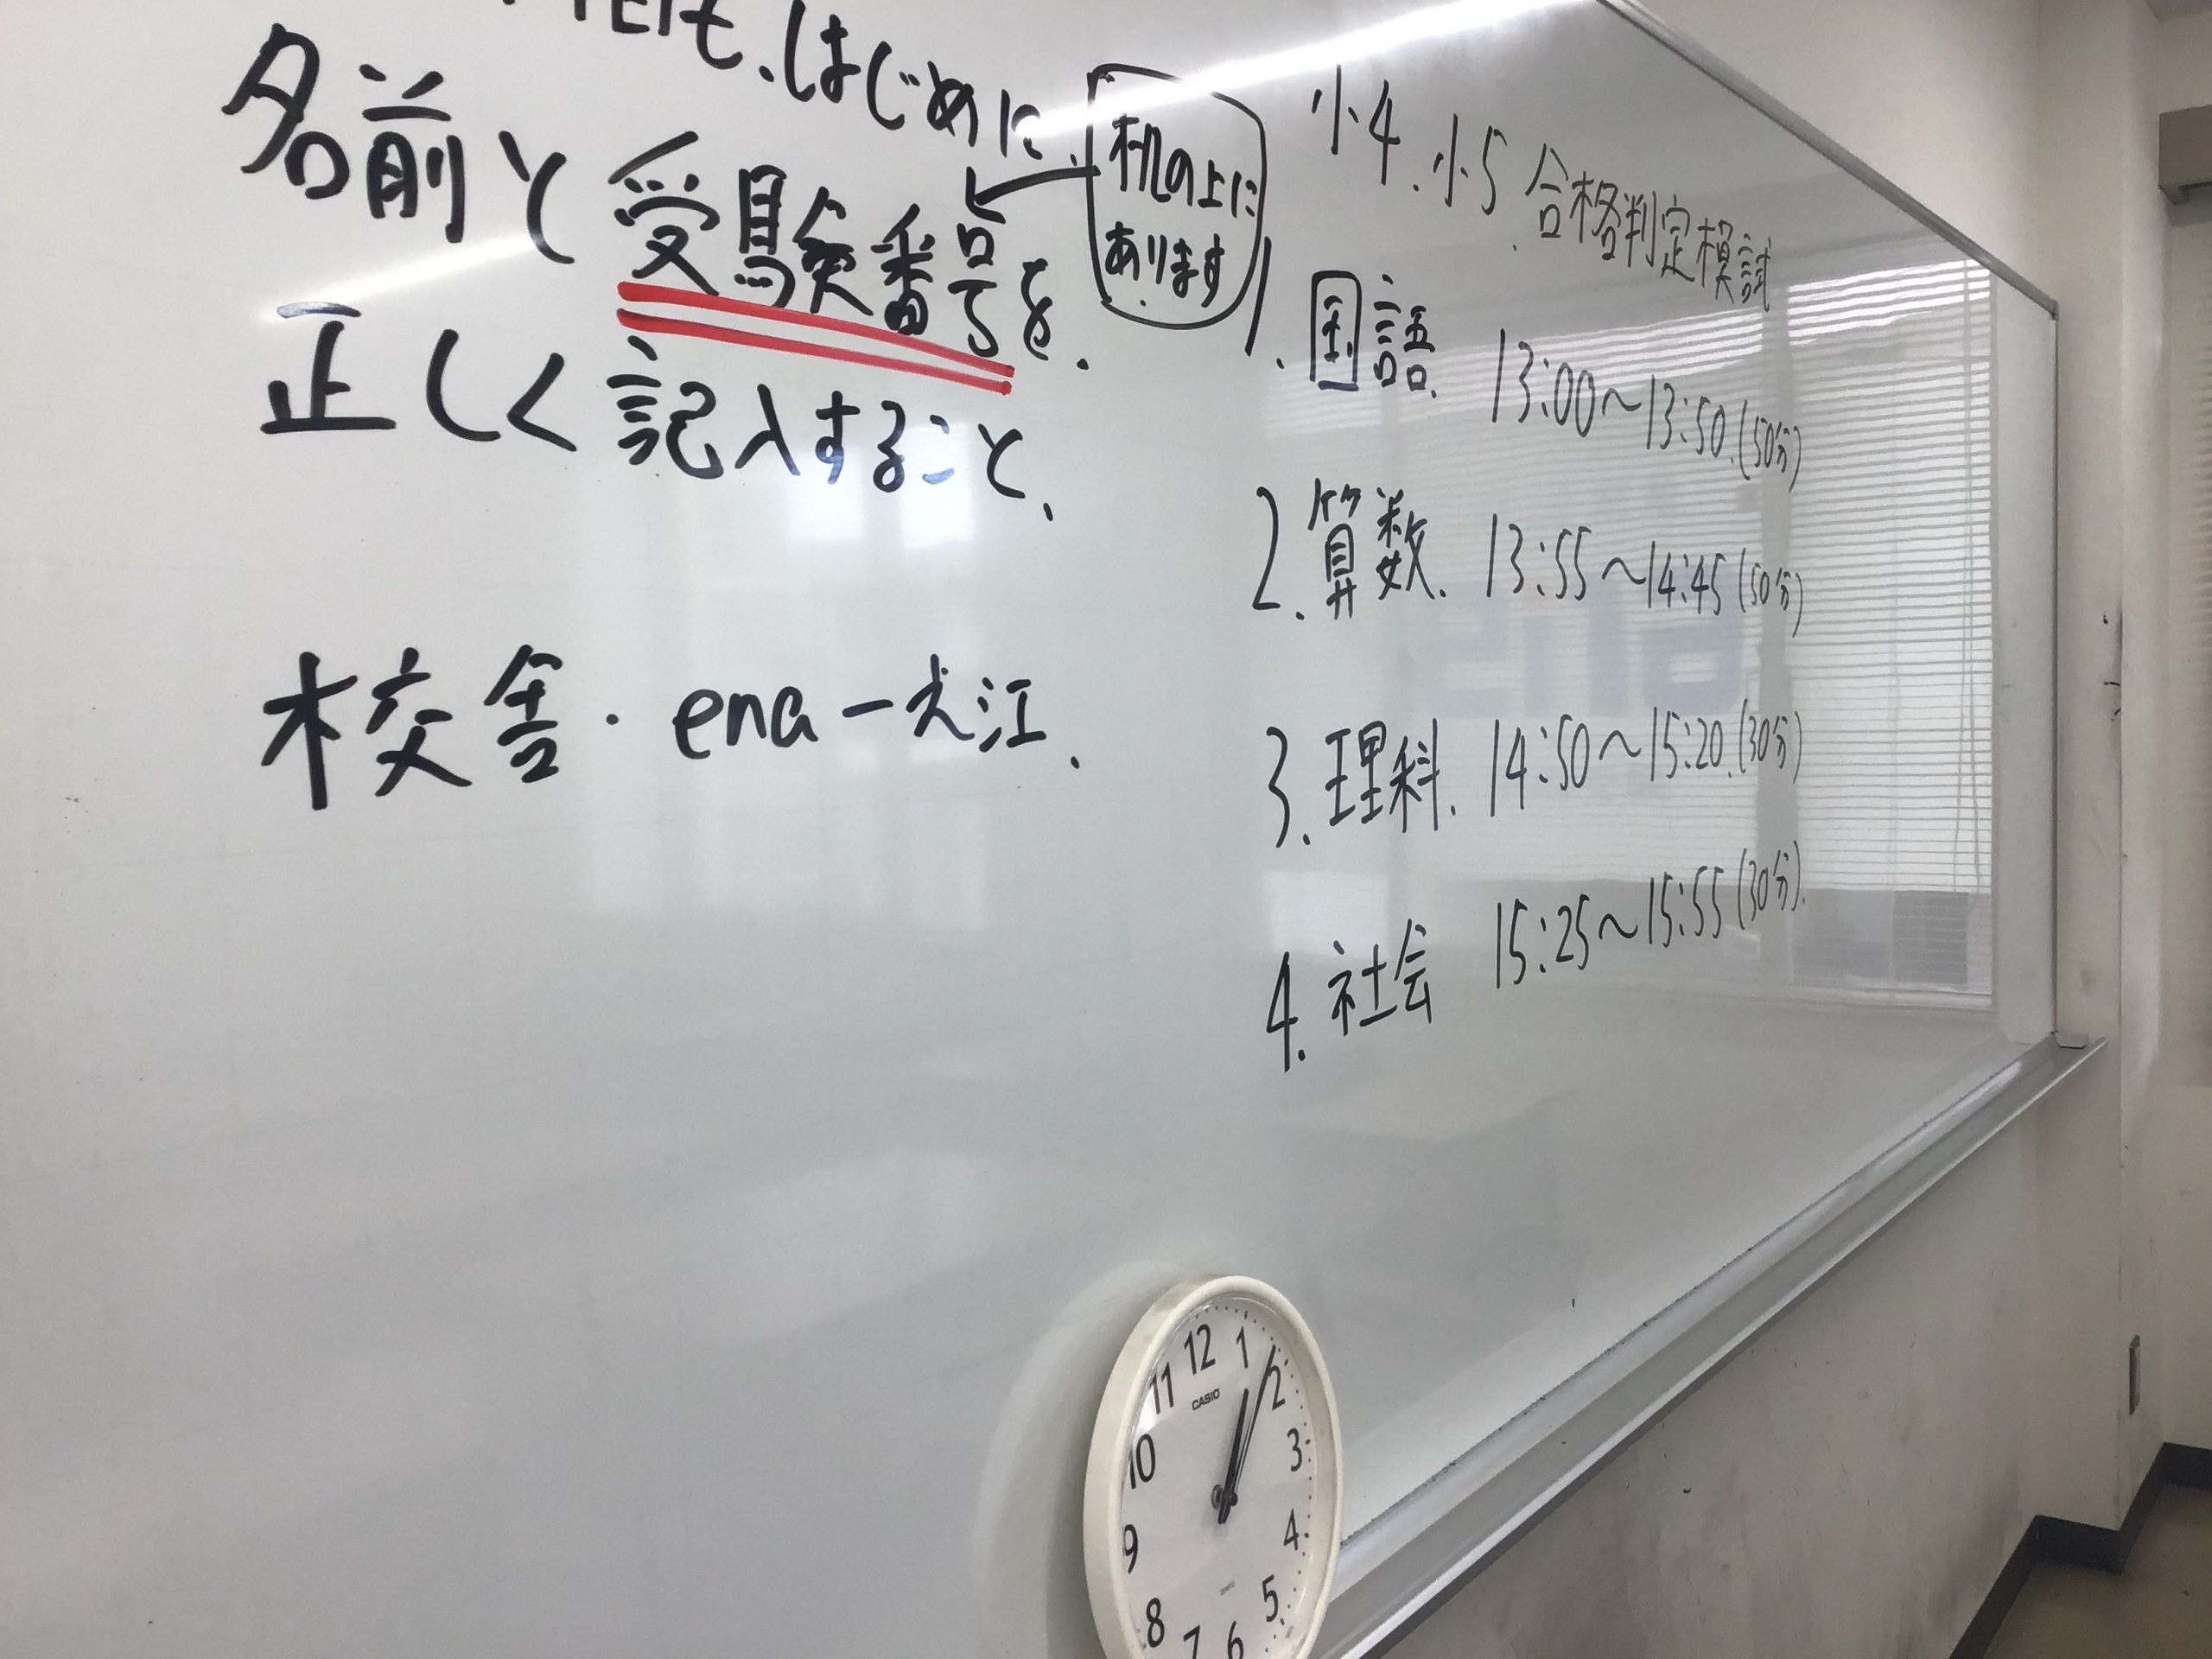 はじめに、
名前と受験番号を、
正しく記入すること、
机の上に
あります
校舎・ena一犬江、
小4、小5 合格判定模試
1. 国語、 13:00～13:50 (50分)
2. 算数、 13:55～14:45 (50分)
3. 理科、 14:50～15:20 (30分)
4. 社会 15:25～15:55 (30分)
12
1
2
3
4
5
6
7
8
9
10
11
CASIO